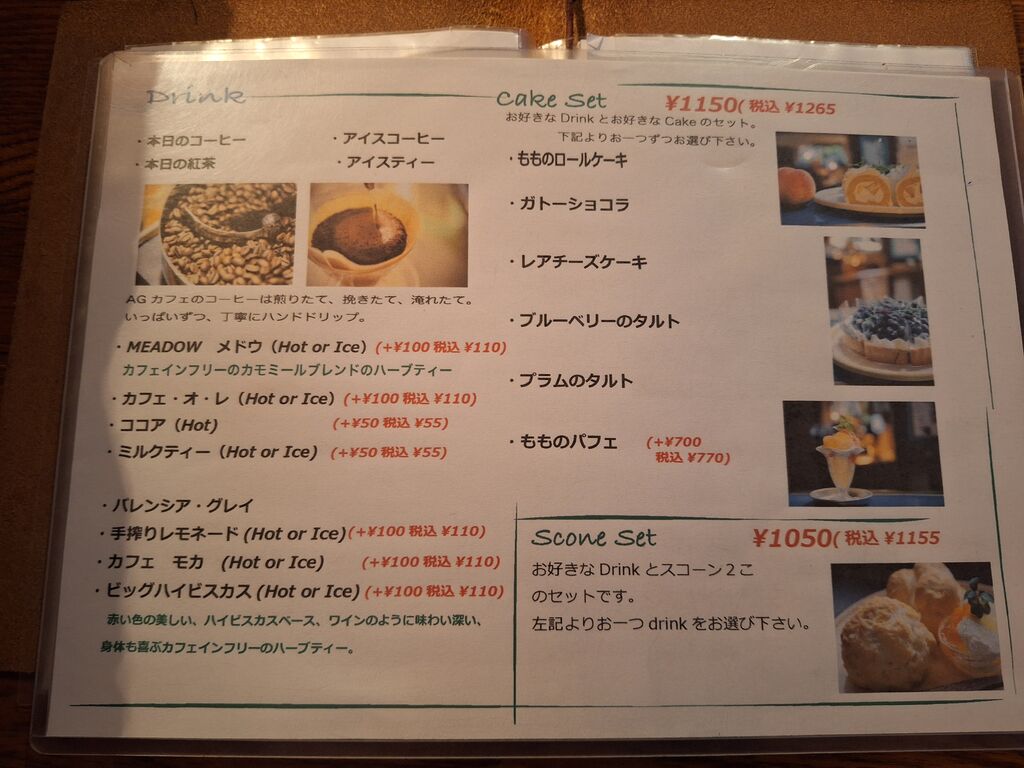 Drink
・本日のコーヒー ・アイスコーヒー
・本日の紅茶 ・アイスティー
AG カフェのコーヒーは煎りたて、挽きたて、淹れたて。
いっぱいずつ、丁寧にハンドドリップ。
・MEADOW メドウ（Hot or Ice）(+¥100 税込 ¥110)
カフェインフリーのカモミールブレンドのハーブティー
・カフェ・オ・レ（Hot or Ice）(+¥100 税込 ¥110)
・ココア（Hot) (+¥50 税込 ¥55)
・ミルクティー（Hot or Ice) (+¥50 税込 ¥55)
・バレンシア・グレイ
・手搾りレモネード (Hot or Ice)(+¥100 税込 ¥110)
・カフェ モカ (Hot or Ice) (+¥100 税込 ¥110)
・ビッグハイビスカス (Hot or Ice) (+¥100 税込 ¥110)
赤い色の美しい、ハイビスカスベース、ワインのように味わい深い、
身体も喜ぶカフェインフリーのハーブティー。
Cake Set ¥1150( 税込 ¥1265
お好きな Drink とお好きな Cake のセット。
下記よりお一つずつお選び下さい。
・もものロールケーキ
・ガトーショコラ
・レアチーズケーキ
・ブルーベリーのタルト
・プラムのタルト
・もものパフェ (+¥700
税込 ¥770)
Scone Set ¥1050( 税込 ¥1155
お好きな Drink とスコーン２こ
のセットです。
左記よりお一つ drink をお選び下さい。